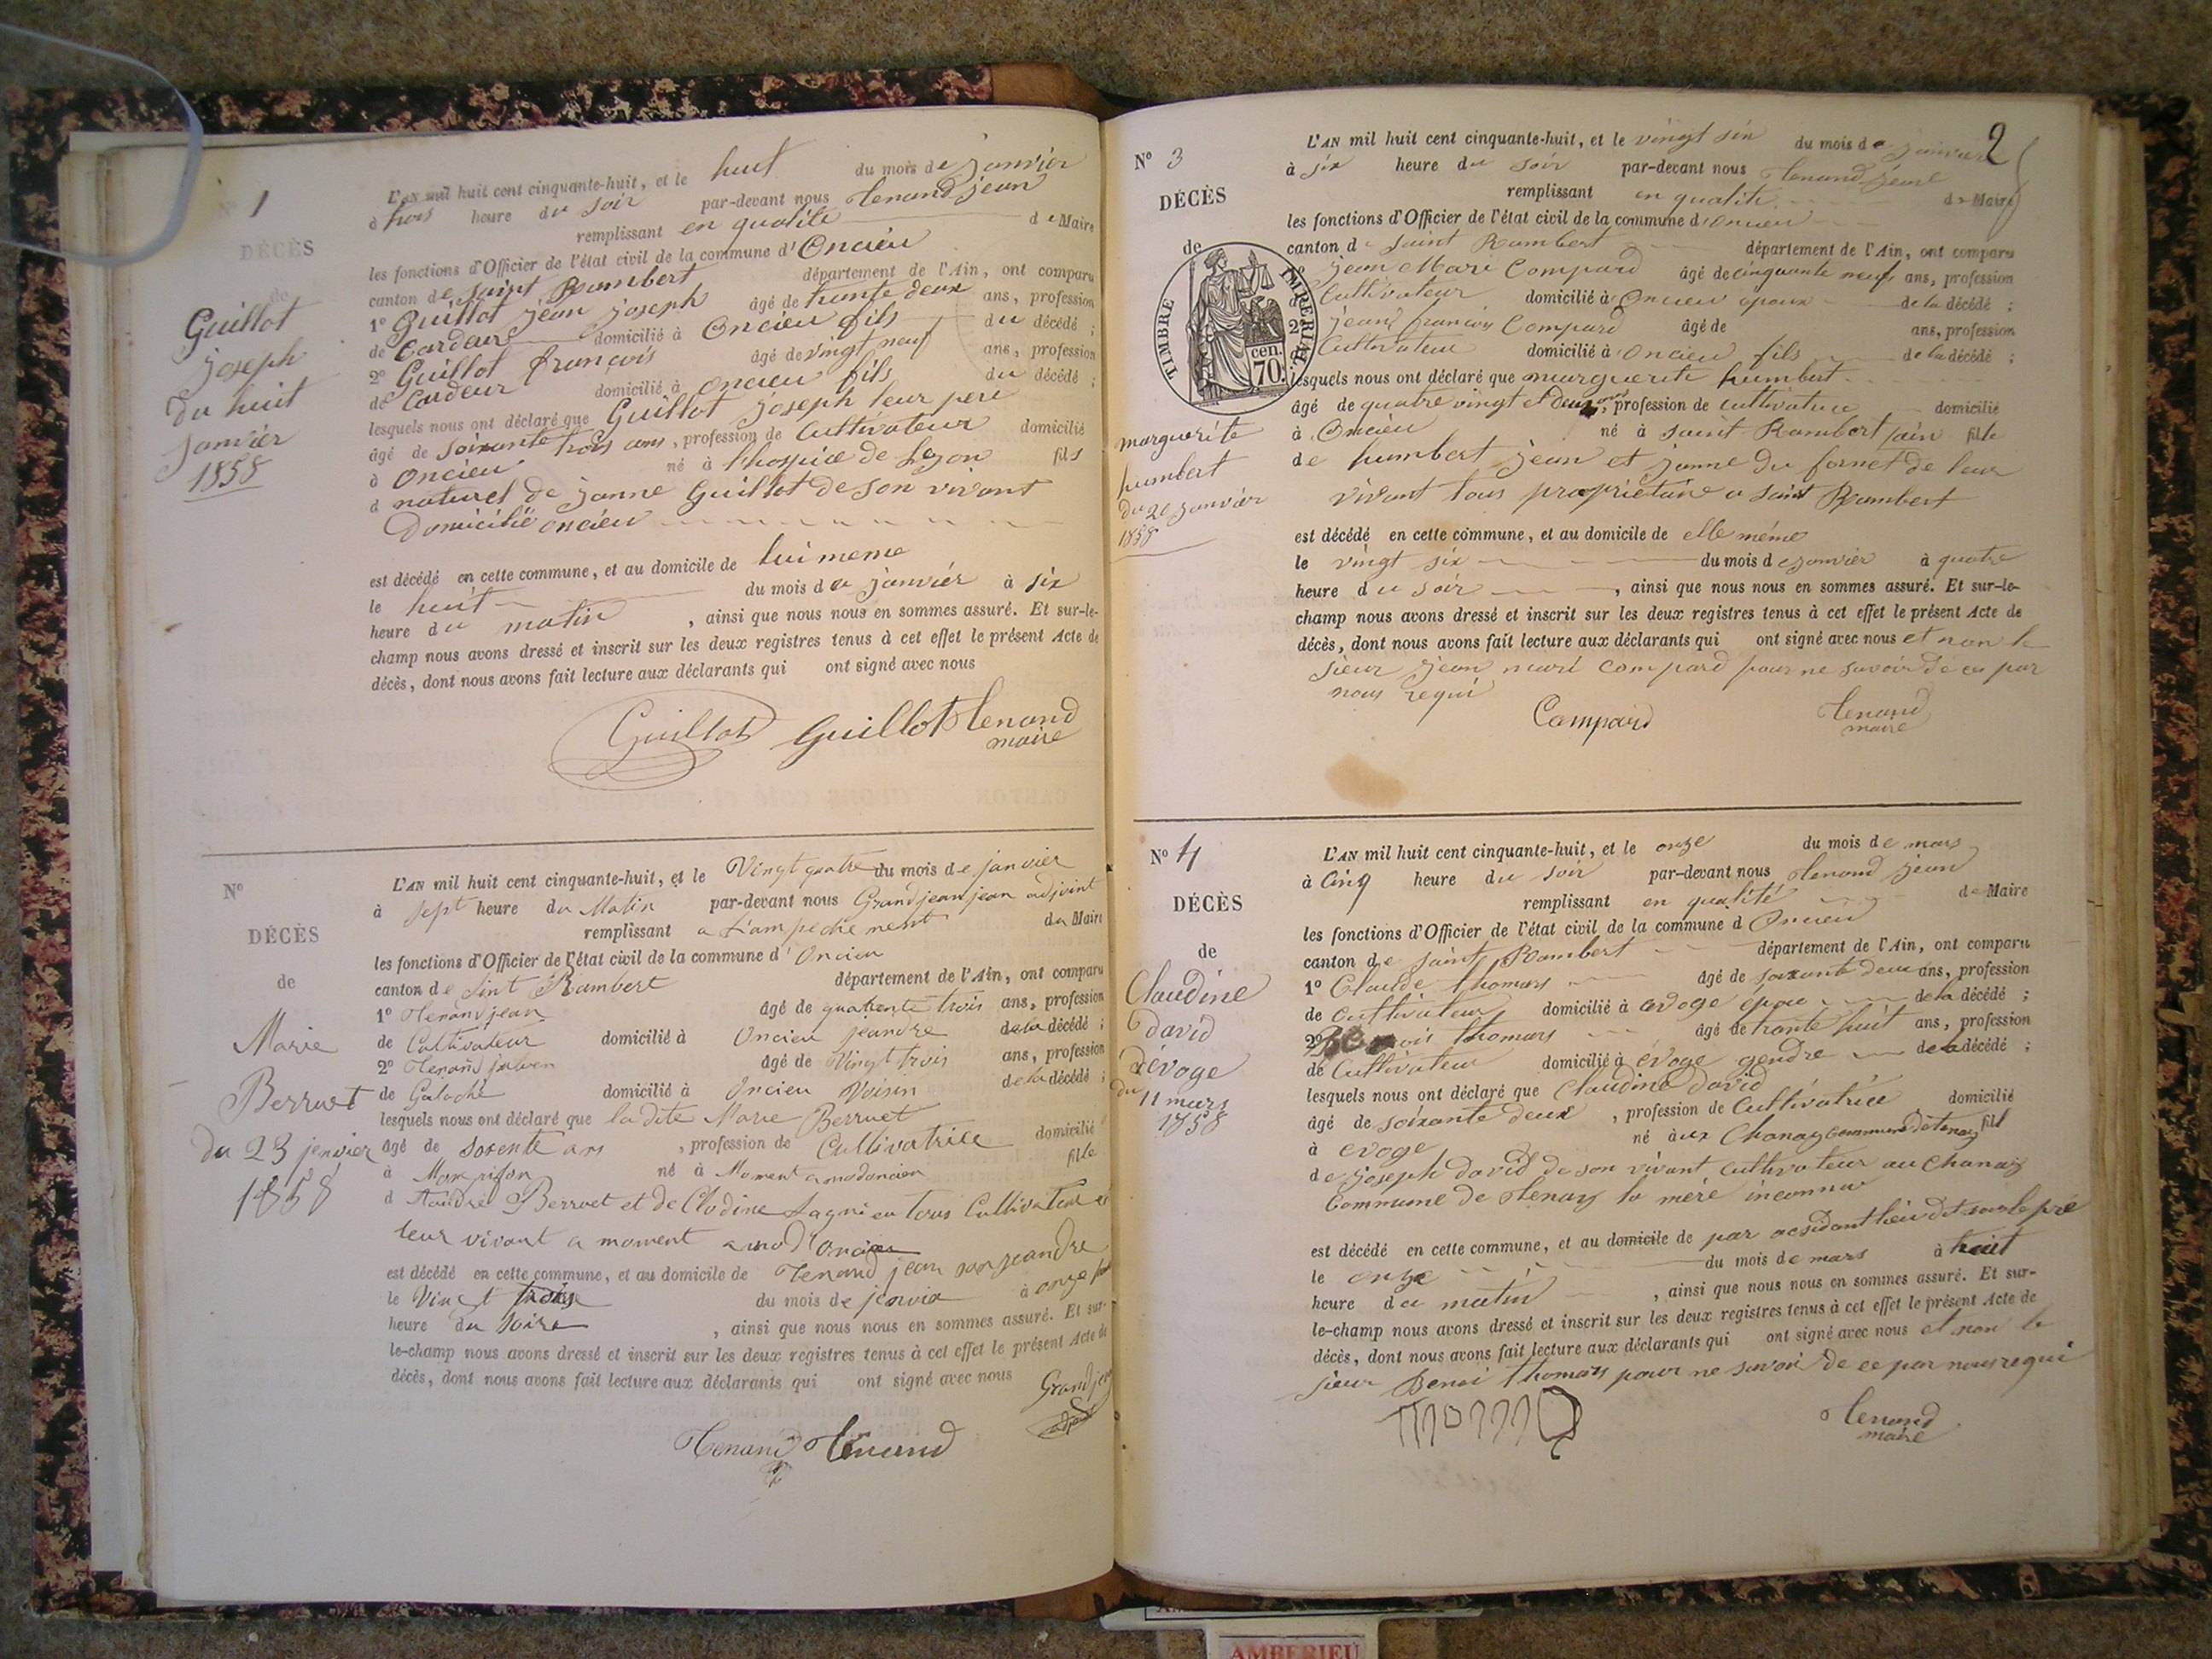 N° 1
DÉCÈS
de
Guillot
joseph
Du huit
janvier
1858
L'AN mil huit cent cinquante-huit, et le huit du mois de janvier
à trois heure du soir par-devant nous tenand jean
remplissant en qualité de Maire
les fonctions d'Officier de l'état civil de la commune d'Oncieu
canton de saint Rambert département de l'Ain, ont comparu
1° Guillot jean joseph âgé de trente deux ans, profession
de Cardeur domicilié à Oncieu fils du décédé ;
2° Guillot francois âgé de vingt neuf ans, profession
de Cardeur domicilié à oncieu fils du décédé ;
lesquels nous ont déclaré que Guillot joseph leur pere
âgé de soixante trois ans, profession de Cultivateur domicilié
à Oncieu né à l'hospice de Lyon fils
d naturel de janne Guillot de son vivant
Domicilié oncieu
est décédé en cette commune, et au domicile de lui meme
le huit du mois de janvier à six
heure du matin, ainsi que nous nous en sommes assuré. Et sur-le-
champ nous avons dressé et inscrit sur les deux registres tenus à cet effet le présent Acte de
décès, dont nous avons fait lecture aux déclarants qui ont signé avec nous
Guillot Guillot tenand
maire
N°
DÉCÈS
de
Marie
Berruet
du 23 jenvier
1858
L'AN mil huit cent cinquante-huit, et le Vingt quatre du mois de janvier
à sept heure du Matin par-devant nous Grandjean jean adjoint
remplissant a l'ampechement du Maire
les fonctions d'Officier de l'état civil de la commune d'Oncieu
canton de Sint Rambert département de l'Ain, ont comparu
1° tenand jean âgé de quatrente trois ans, profession
de Cultivateur domicilié à Oncieu jeandre de la décédé ;
2° tenand âgé de Vingt trois ans, profession
de Galoché domicilié à Oncieu Voisin de la décédé ;
lesquels nous ont déclaré que la dite Marie Berruet
âgé de sosente ans, profession de Cultivatrice domicilié
à né à Moment fille
d Berruet et de Clodine Lagnieu tous Cultivateur
leur vivant a moment
est décédé en cette commune, et au domicile de tenand jean son jeandre
le Vinct trois du mois de jenvier à onze
heure du soire, ainsi que nous nous en sommes assuré. Et sur-
le-champ nous avons dressé et inscrit sur les deux registres tenus à cet effet le présent Acte de
décès, dont nous avons fait lecture aux déclarants qui ont signé avec nous
Grandjean
Tenand tenand
2
N° 3
DÉCÈS
de
TIMBRE IMPERIAL
70. cen.
marguerite
humbert
du 26 janvier
1858
L'AN mil huit cent cinquante-huit, et le vingt six du mois de janvier
à six heure du soir par-devant nous tenand jean
remplissant en qualité de Maire
les fonctions d'Officier de l'état civil de la commune d'oncieu
canton de saint Rambert département de l'Ain, ont comparu
jean Mari Compard âgé de cinquante neuf ans, profession
Cultivateur domicilié à Oncieu époux de la décédé ;
2° jean francois Compard âgé de ans, profession
Cultivateur domicilié à oncieu fils de la décédé ;
lesquels nous ont déclaré que marguerite humbert
âgé de quatre vingt et deux ans, profession de cultivatrice domicilié
à Oncieu né à saint Rambert fille
de humbert jean et janne du fornet de leur
vivant tous propriétaire a saint Rambert
est décédé en cette commune, et au domicile de elle même
le vingt six du mois de janvier à quatre
heure du soir, ainsi que nous nous en sommes assuré. Et sur-le-
champ nous avons dressé et inscrit sur les deux registres tenus à cet effet le présent Acte de
décès, dont nous avons fait lecture aux déclarants qui ont signé avec nous et non le
sieur jean mari compard pour ne savoir de ce par
nous requi
Compard tenand
maire
N° 4
DÉCÈS
de
Claudine
david
d'évoge
du 11 mars
1858
L'AN mil huit cent cinquante-huit, et le onze du mois de mars
à Cinq heure du soir par-devant nous tenand jean
remplissant en qualité de Maire
les fonctions d'Officier de l'état civil de la commune d Oncieu
canton de saint Rambert département de l'Ain, ont comparu
1° Claude thomas âgé de soixante deux ans, profession
de Cultivateur domicilié à évoge épou de la décédé ;
2° thomas âgé de trante huit ans, profession
de Cultivateur domicilié à évoge gendre de la décédé ;
lesquels nous ont déclaré que Claudine David
âgé de soixante deux, profession de Cultivatrice domicilié
à evoge né àux Chanay commune de tenay fill
de joseph david de son vivant cultivateur au Chanay
Commune de tenay la mére inconnue
est décédé en cette commune, et au domicile de par acsidant lieu dit sur le pré
le onze du mois de mars à huit
heure du matin, ainsi que nous nous en sommes assuré. Et sur-
le-champ nous avons dressé et inscrit sur les deux registres tenus à cet effet le présent Acte de
décès, dont nous avons fait lecture aux déclarants qui ont signé avec nous et non le
sieur Benoi thomas pour ne savoir de ce par nous requi
tenand
maire
AMBERIEU